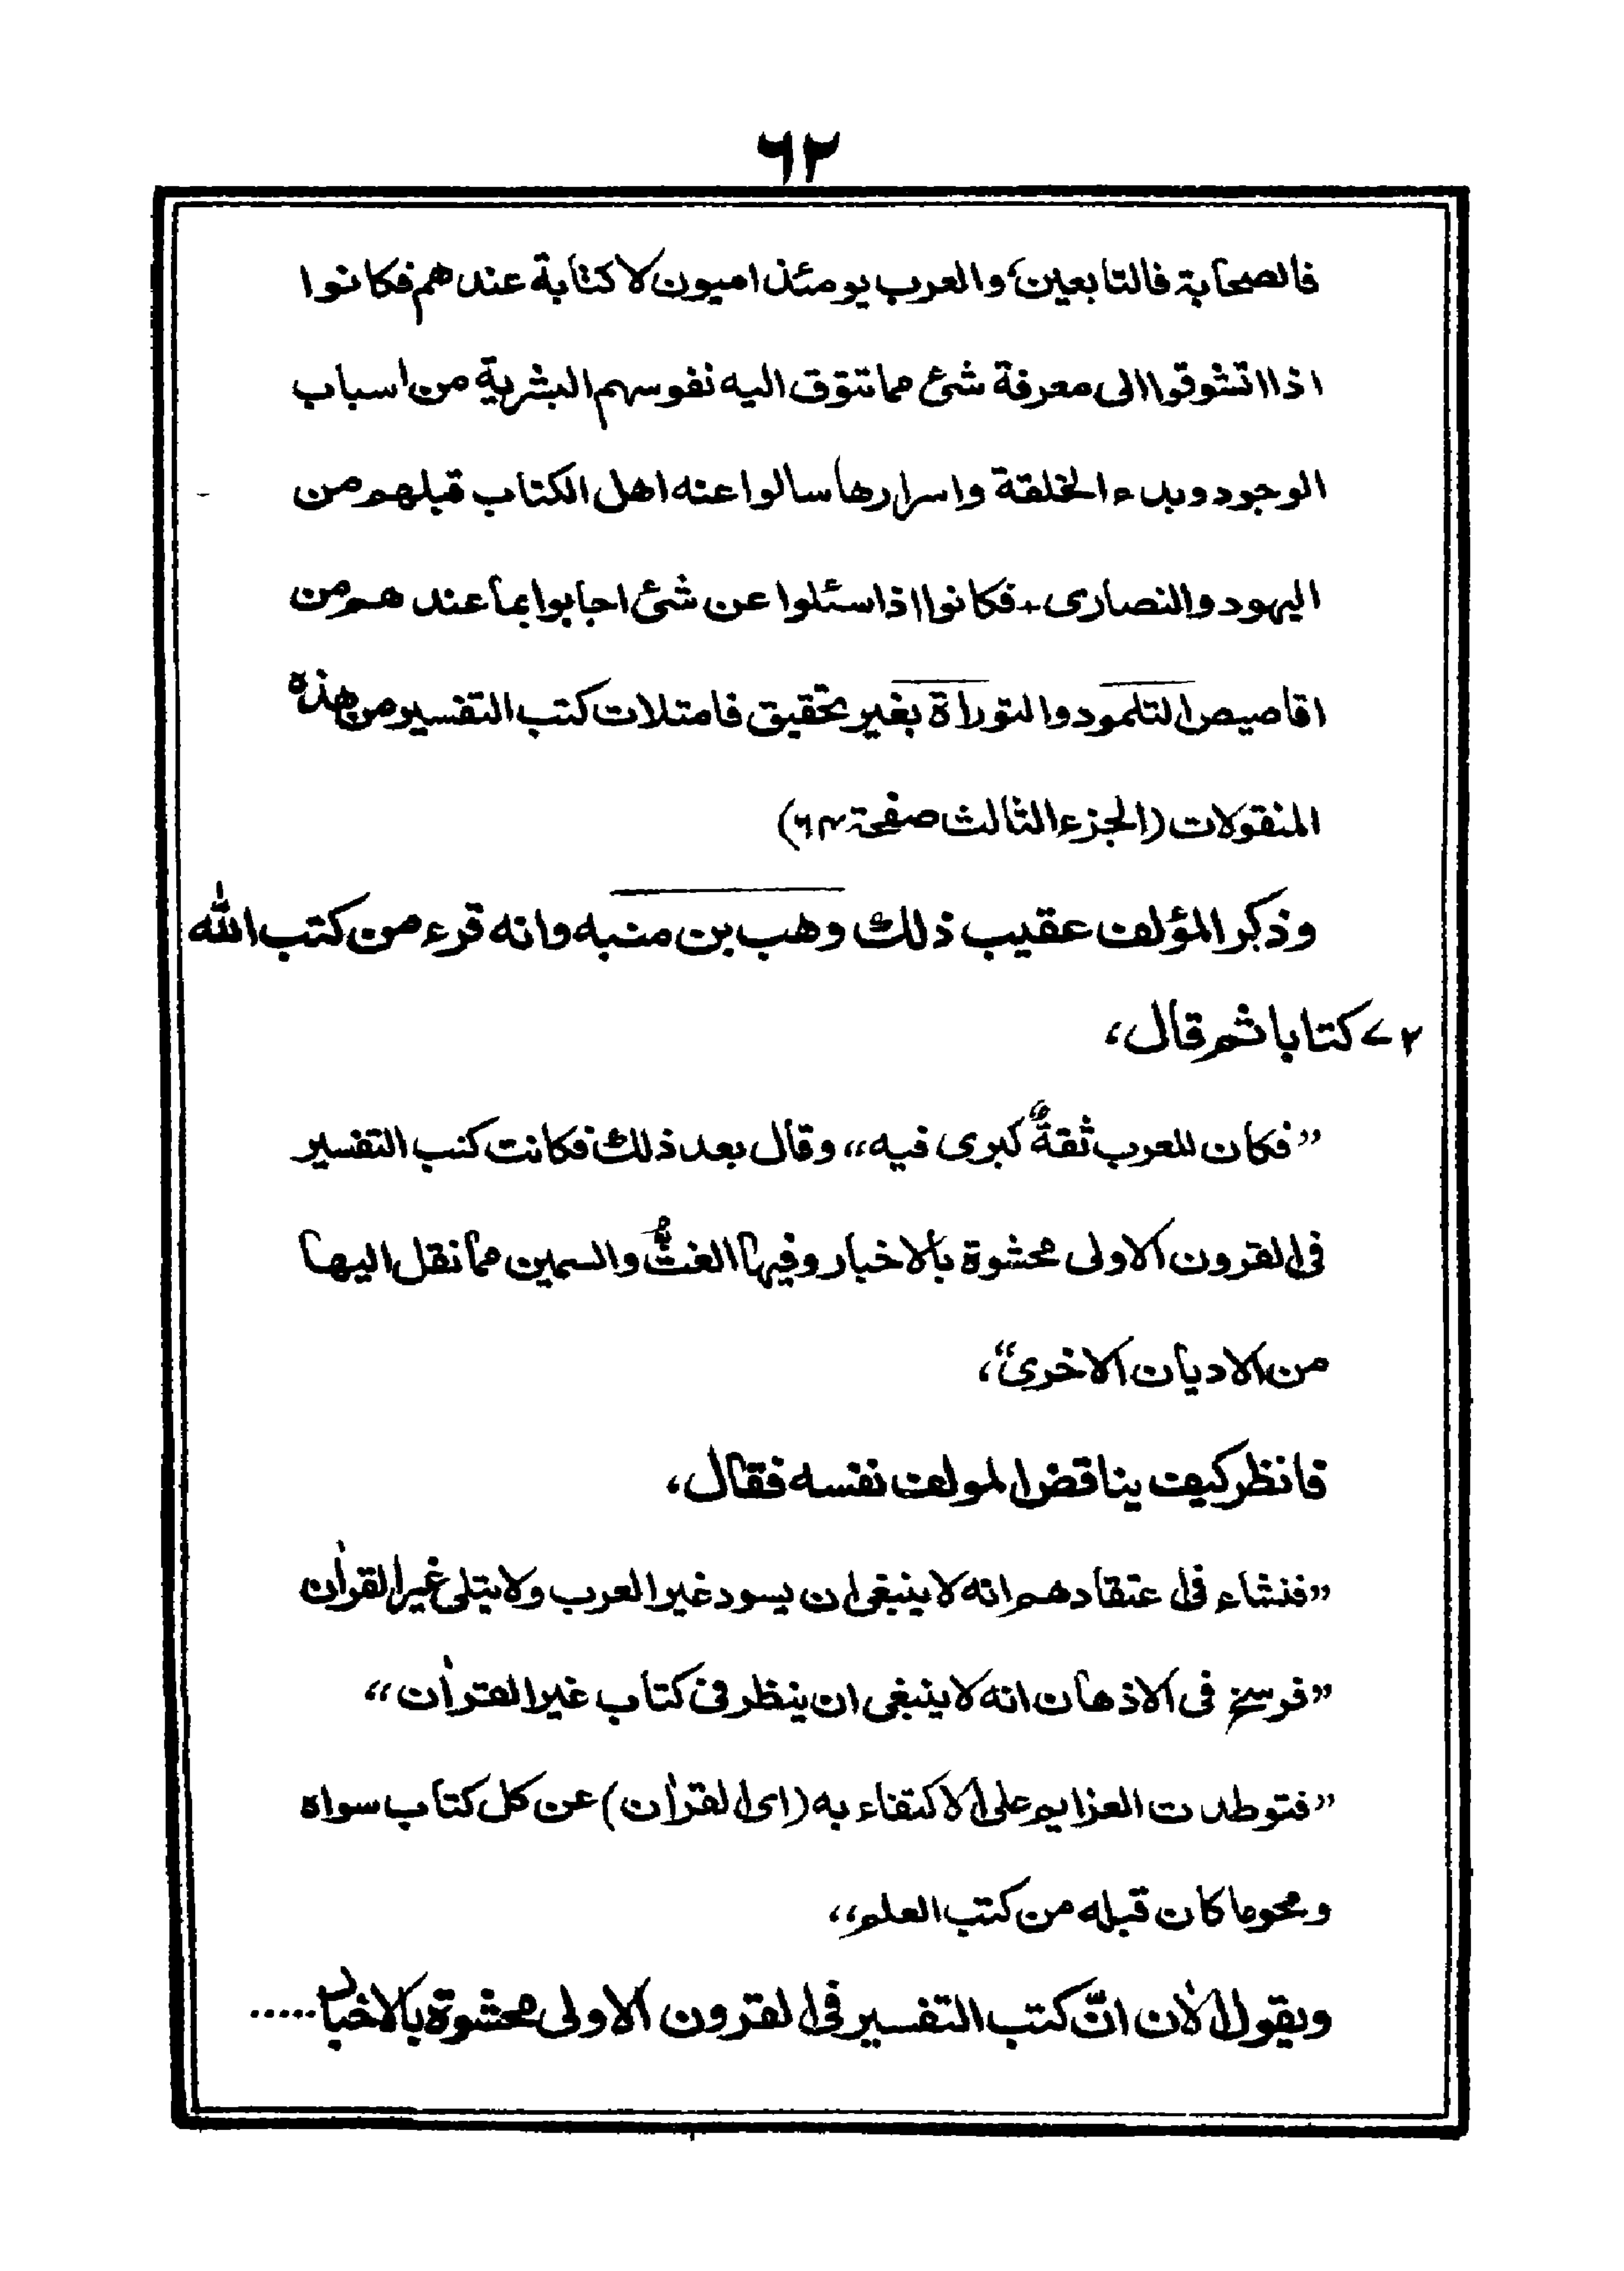 ٦٢
فالصحابة فالتابعين، والعرب يومئذ اميون لا كتابة عندهم فكانوا
اذا اتشوقوا الى معرفة شئ مما تتوق اليه نفوسهم البشرية من اسباب
الوجود وبدء الخلقة واسرارها سالوا عنه اهل الكتاب قبلهم من
اليهود والنصارى ـ فكانوا اذا سئلوا عن شئ اجابوا بما عندهم من
اقاصيص التلمود والتوراة بغير تحقيق فامتلات كتب التفسير من هذه
المنقولات (الجزء الثالث صفحة ٦٤)
وذكر المؤلف عقيب ذلك وهب بن منبه وانه قرء من كتب الله
۷۲ كتابا ثم قال،
”فكان للعرب ثقةٌ كبرى فيه“ وقال بعد ذلك فكانت كتب التفسير
فى القرون الاولى محشوة بالاخبار وفيها الغثُّ والسمين مما نقل اليها
من الاديان الاخرى“،
فانظر كيف يناقض المولف نفسه فقال،
”فنشاء فى اعتقادهم انه لا ينبغى ان يسود غير العرب ولا يتلى غير القرآن
”فرسخ فى الاذهان انه لا ينبغى ان ينظر فى كتاب غير القرآن“
”فتوطدت العزايم على الاكتفاء به (اى القرآن) عن كل كتاب سواه
ومحو ما كان قبله من كتب العلم“
ويقول الآن انّ كتب التفسير فى القرون الاولى محشوة بالاخبار .....